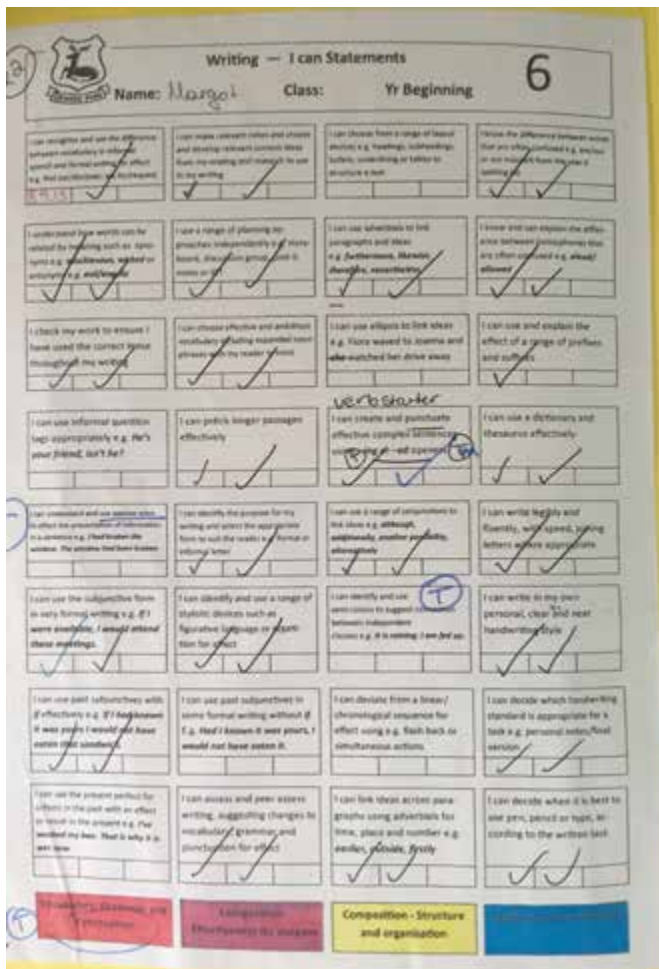 Writing — I can Statements
6
Name: Margot Class: Yr Beginning
I can recognise and use the difference
between vocabulary in informal
speech and formal writing for effect
I can make relevant notes and choose
and develop relevant content ideas
from my reading and research to use
in my writing
I can choose from a range of layout
devices e.g. headings, subheadings,
bullets, underlining or tables to
structure a text
I know the difference between words
that are often confused e.g.
I understand how words can be
related by meaning such as syno-
nyms e.g. or
antonyms e.g.
I use a range of planning ap-
proaches independently e.g. story-
board, discussion group, post it
notes or
I can use adverbials to link
paragraphs and ideas
e.g. furthermore, likewise,
therefore, nevertheless
I know and can explain the differ-
ence between homophones that
are often confused e.g. aloud/
allowed
I check my work to ensure I
have used the correct tense
throughout my writing
I can choose effective and ambitious
vocabulary including expanded noun
phrases with my reader in mind
I can use ellipsis to link ideas
e.g. Fiona waved to Joanna and
she watched her drive away
I can use and explain the
effect of a range of prefixes
and suffixes
I can use informal question
tags appropriately e.g. He's
your friend, isn't he?
I can précis longer passages
effectively
verb starter
I can create and punctuate
effective complex sentences
using ing or -ed openers
I can use a dictionary and
thesaurus effectively
I can understand and use passive voice
to affect the presentation of information
in a sentence e.g. I had broken the
window. The window had been broken
I can identify the purpose for my
writing and select the appropriate
form to suit the reader e.g. formal or
informal letter
I can use a range of conjunctions to
link ideas e.g. although,
additionally, another possibility,
alternatively
I can write legibly and
fluently, with speed, joining
letters where appropriate
I can use the subjunctive form
in very formal writing e.g. If I
were available, I would attend
these meetings.
I can identify and use a range of
stylistic devices such as
figurative language or repeti-
tion for effect
I can identify and use
semi-colons to suggest
between independent
clauses e.g. It is raining; I am fed up.
T
I can write in my own
personal, clear and neat
handwriting style
I can use past subjunctives with
if effectively e.g. If I had known
it was yours I would not have
eaten that sandwich.
I can use past subjunctives in
some formal writing without if
E.g. Had I known it was yours, I
would not have eaten it.
I can deviate from a linear/
chronological sequence for
effect using e.g. flash back or
simultaneous actions
I can decide which handwriting
standard is appropriate for a
task e.g. personal notes/final
version
I can use the present perfect for
actions in the past with an effect
or result in the present e.g. I've
washed my hair. That is why it is
wet now
I can assess and peer assess
writing, suggesting changes to
vocabulary, grammar and
punctuation for effect
I can link ideas across para-
graphs using adverbials for
time, place and number e.g.
earlier, outside, firstly
I can decide when it is best to
use pen, pencil or type, ac-
cording to the written task
T
Vocabulary, Grammar and
Punctuation
Composition
Composition - Structure
and organisation